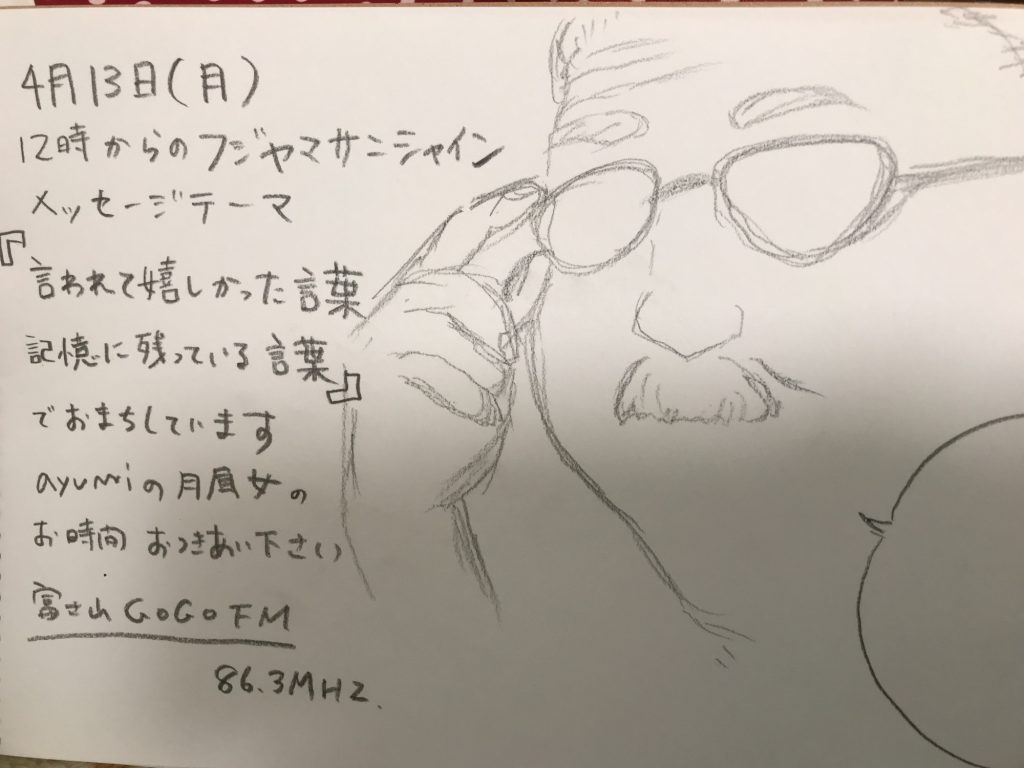 4月13日(月)
12時からのフジヤマサンシャイン
メッセージテーマ
『言われて嬉しかった言葉
記憶に残っている言葉』
でおまちしています
ayumiの月凬女の
お時間 おつきあい下さい
富士山GOGOFM
86.3MHZ.